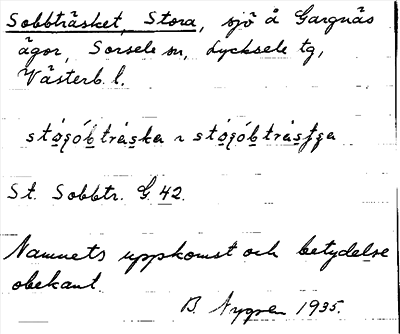 Sobbträsket, Stora, sjö å Gargnäs
ägor, Sorsele sn, Lycksele tg,
Västerb. l.
St. Sobbtr. G 42.
Namnets uppkomst och betydelse
obekant.
B. Nygren 1935.